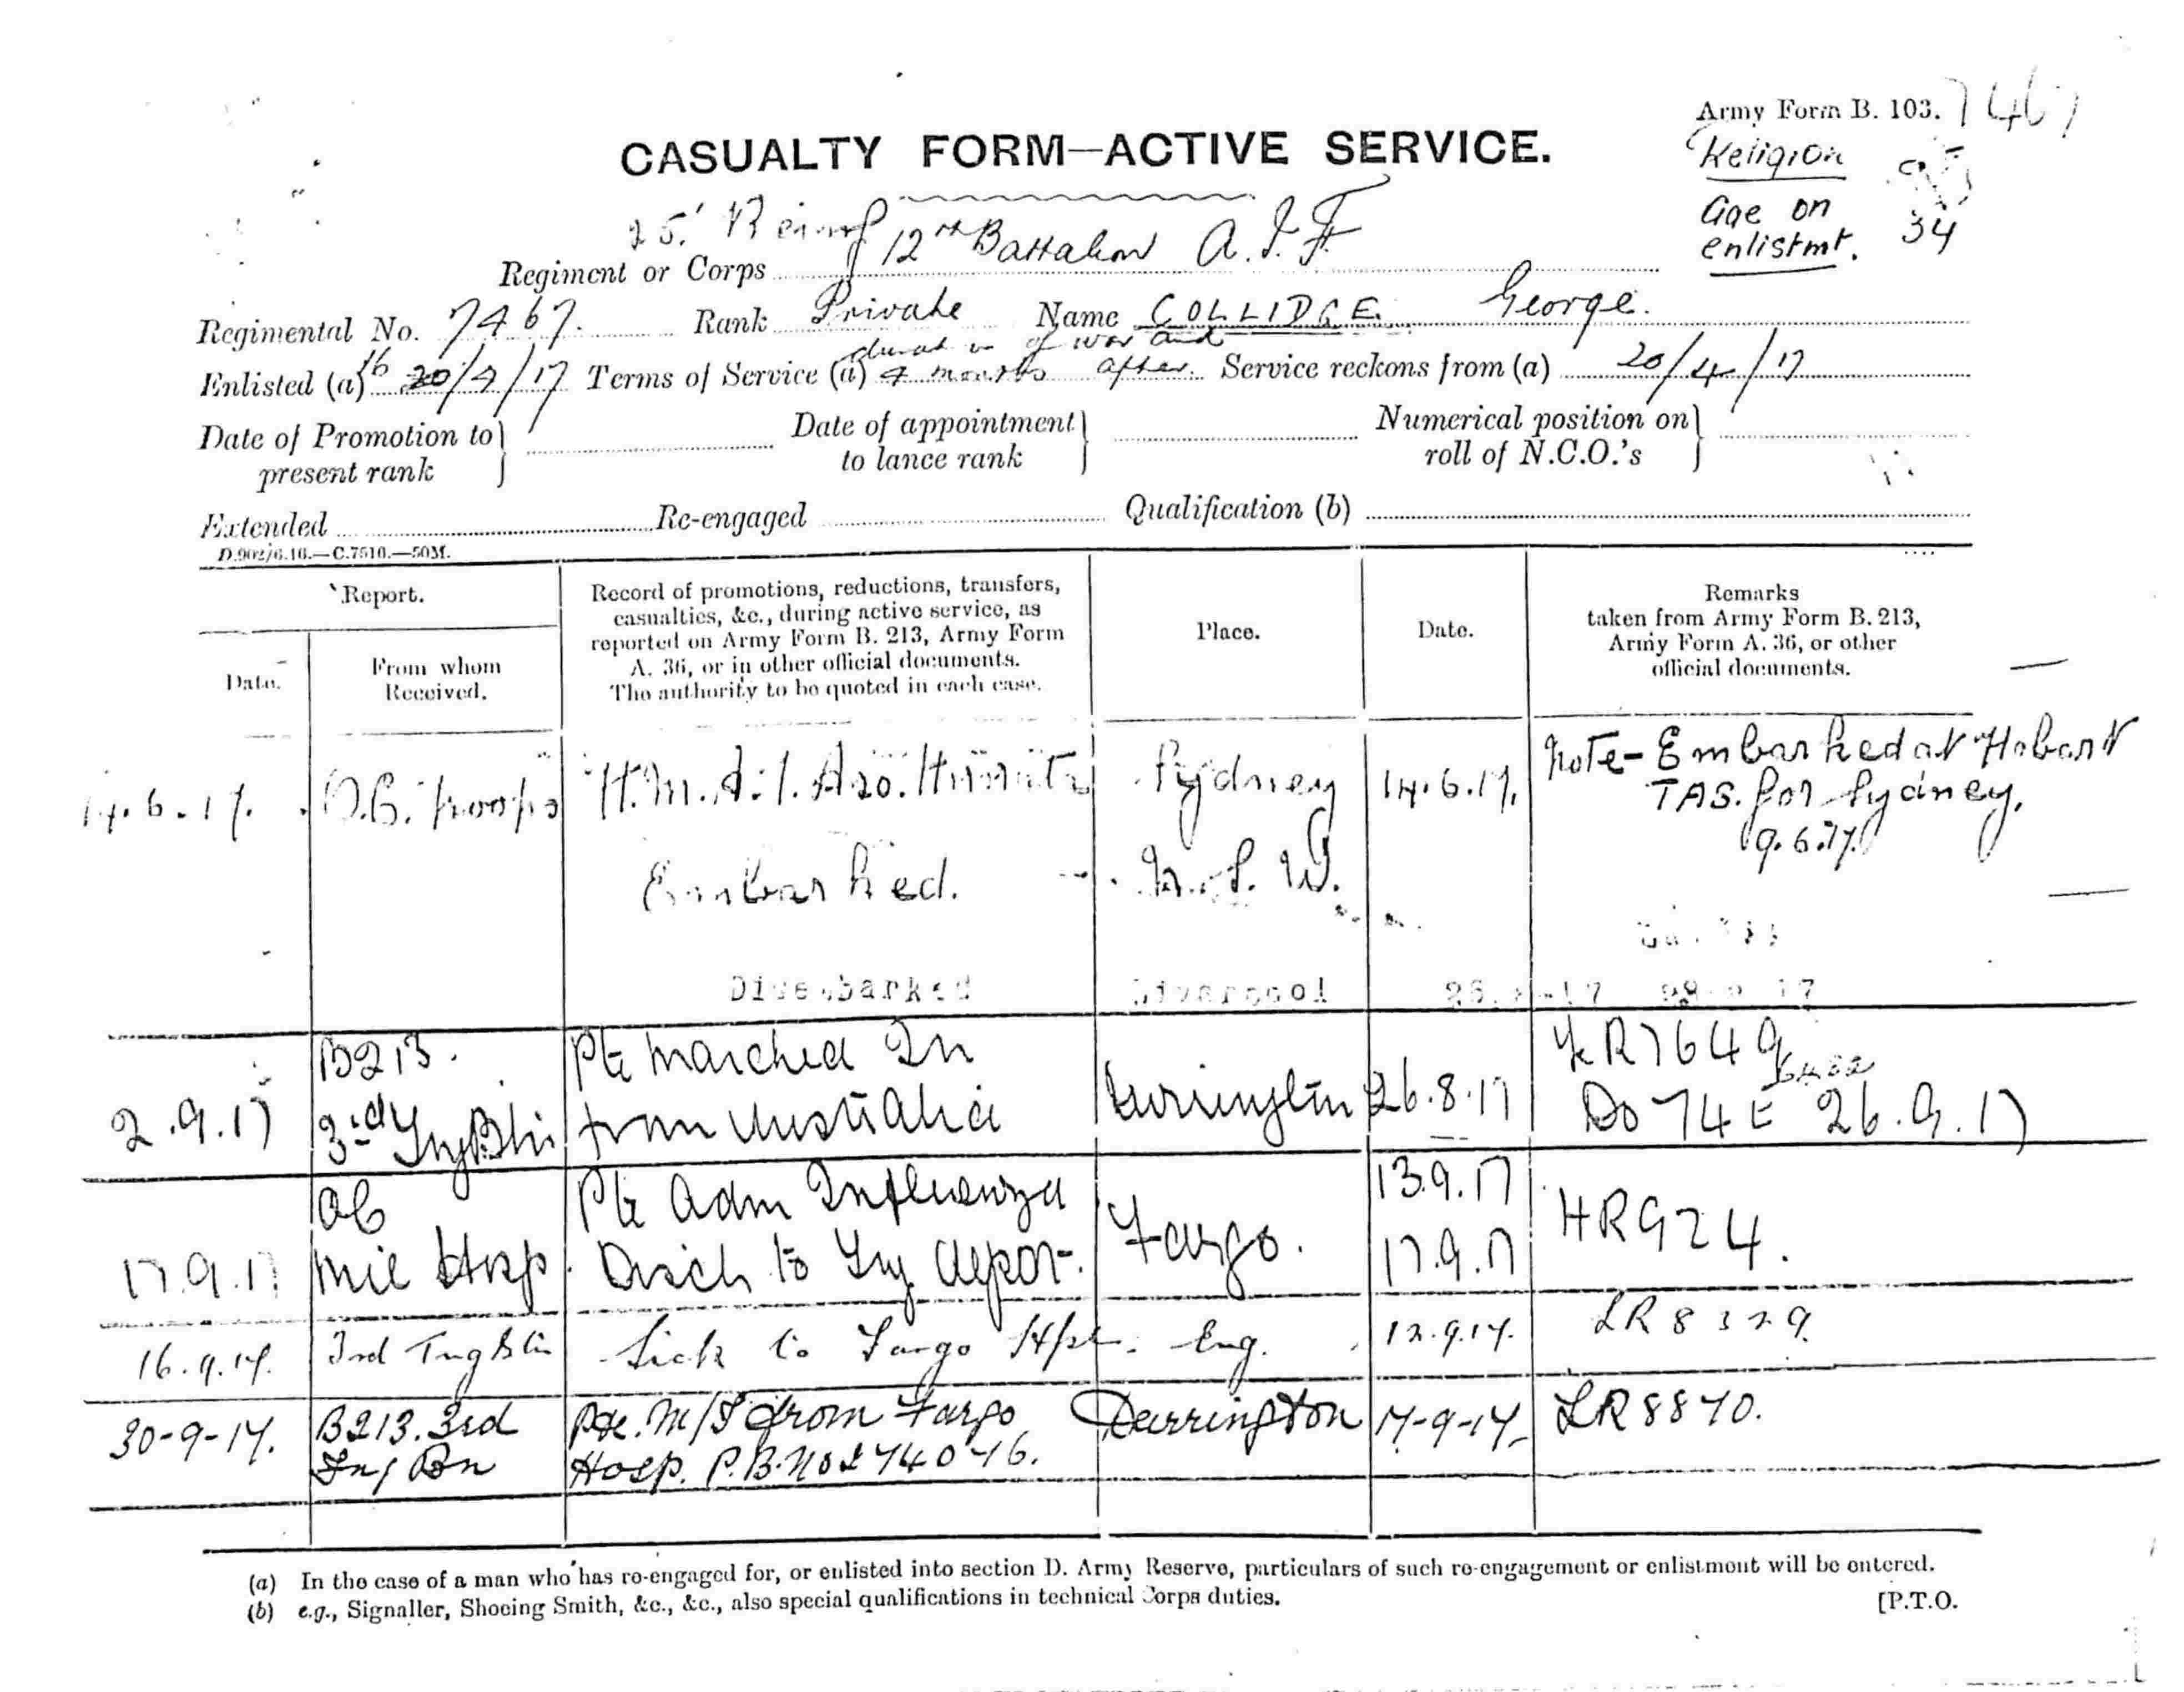 Army Form B. 103. 7467
CASUALTY FORM—ACTIVE SERVICE.
Religion
Age on enlistmt. 34
25' Reinf 12th Battalion A.I.F.
Regiment or Corps
Regimental No. 7467. Rank Private Name COLLIDGE. George.
duration of war and
Enlisted (a) 16 20/4/17 Terms of Service (a) 4 months after. Service reckons from (a) 20/4/17
Date of Promotion to present rank Date of appointment to lance rank Numerical position on roll of N.C.O.'s
Extended Re-engaged Qualification (b)
D.902/6.16.—C.7510.—50M.
Report.
Date.
From whom Received.
Record of promotions, reductions, transfers,
casualties, &c., during active service, as
reported on Army Form B. 213, Army Form
A. 36, or in other official documents.
The authority to be quoted in each case.
Place.
Date.
Remarks
taken from Army Form B. 213,
Army Form A. 36, or other
official documents.
14.6.17. O.C. Troops Sydney 14.6.17. Note-Embarked at Hobart
TAS. for Sydney.
9.6.17.
Embarked. N.S.W.
Disembarked Liverpool
B213. Pte Marched In LR7649
2.9.17 3rd Tng Btn from Australia Durrington 26.8.17 DO 74 26.9.17
OC Pte Adm Influenza 13.9.17
17.9.17 Mil Hosp. Disch to Tng Depot. Fargo. 17.9.17 HR924.
16.9.17. 3rd Tng Btn Sick to Fargo Hpl. Eng. 12.9.17. LR 8329.
30-9-17. B213. 3rd Pte. M/I from Fargo Durrington 17-9-17. LR8870.
Tng Bn Hosp. P.B. No 274076.
(a) In the case of a man who has re-engaged for, or enlisted into section D. Army Reserve, particulars of such re-engagement or enlistment will be entered.
(b) e.g., Signaller, Shoeing Smith, &c., &c., also special qualifications in technical Corps duties.
[P.T.O.